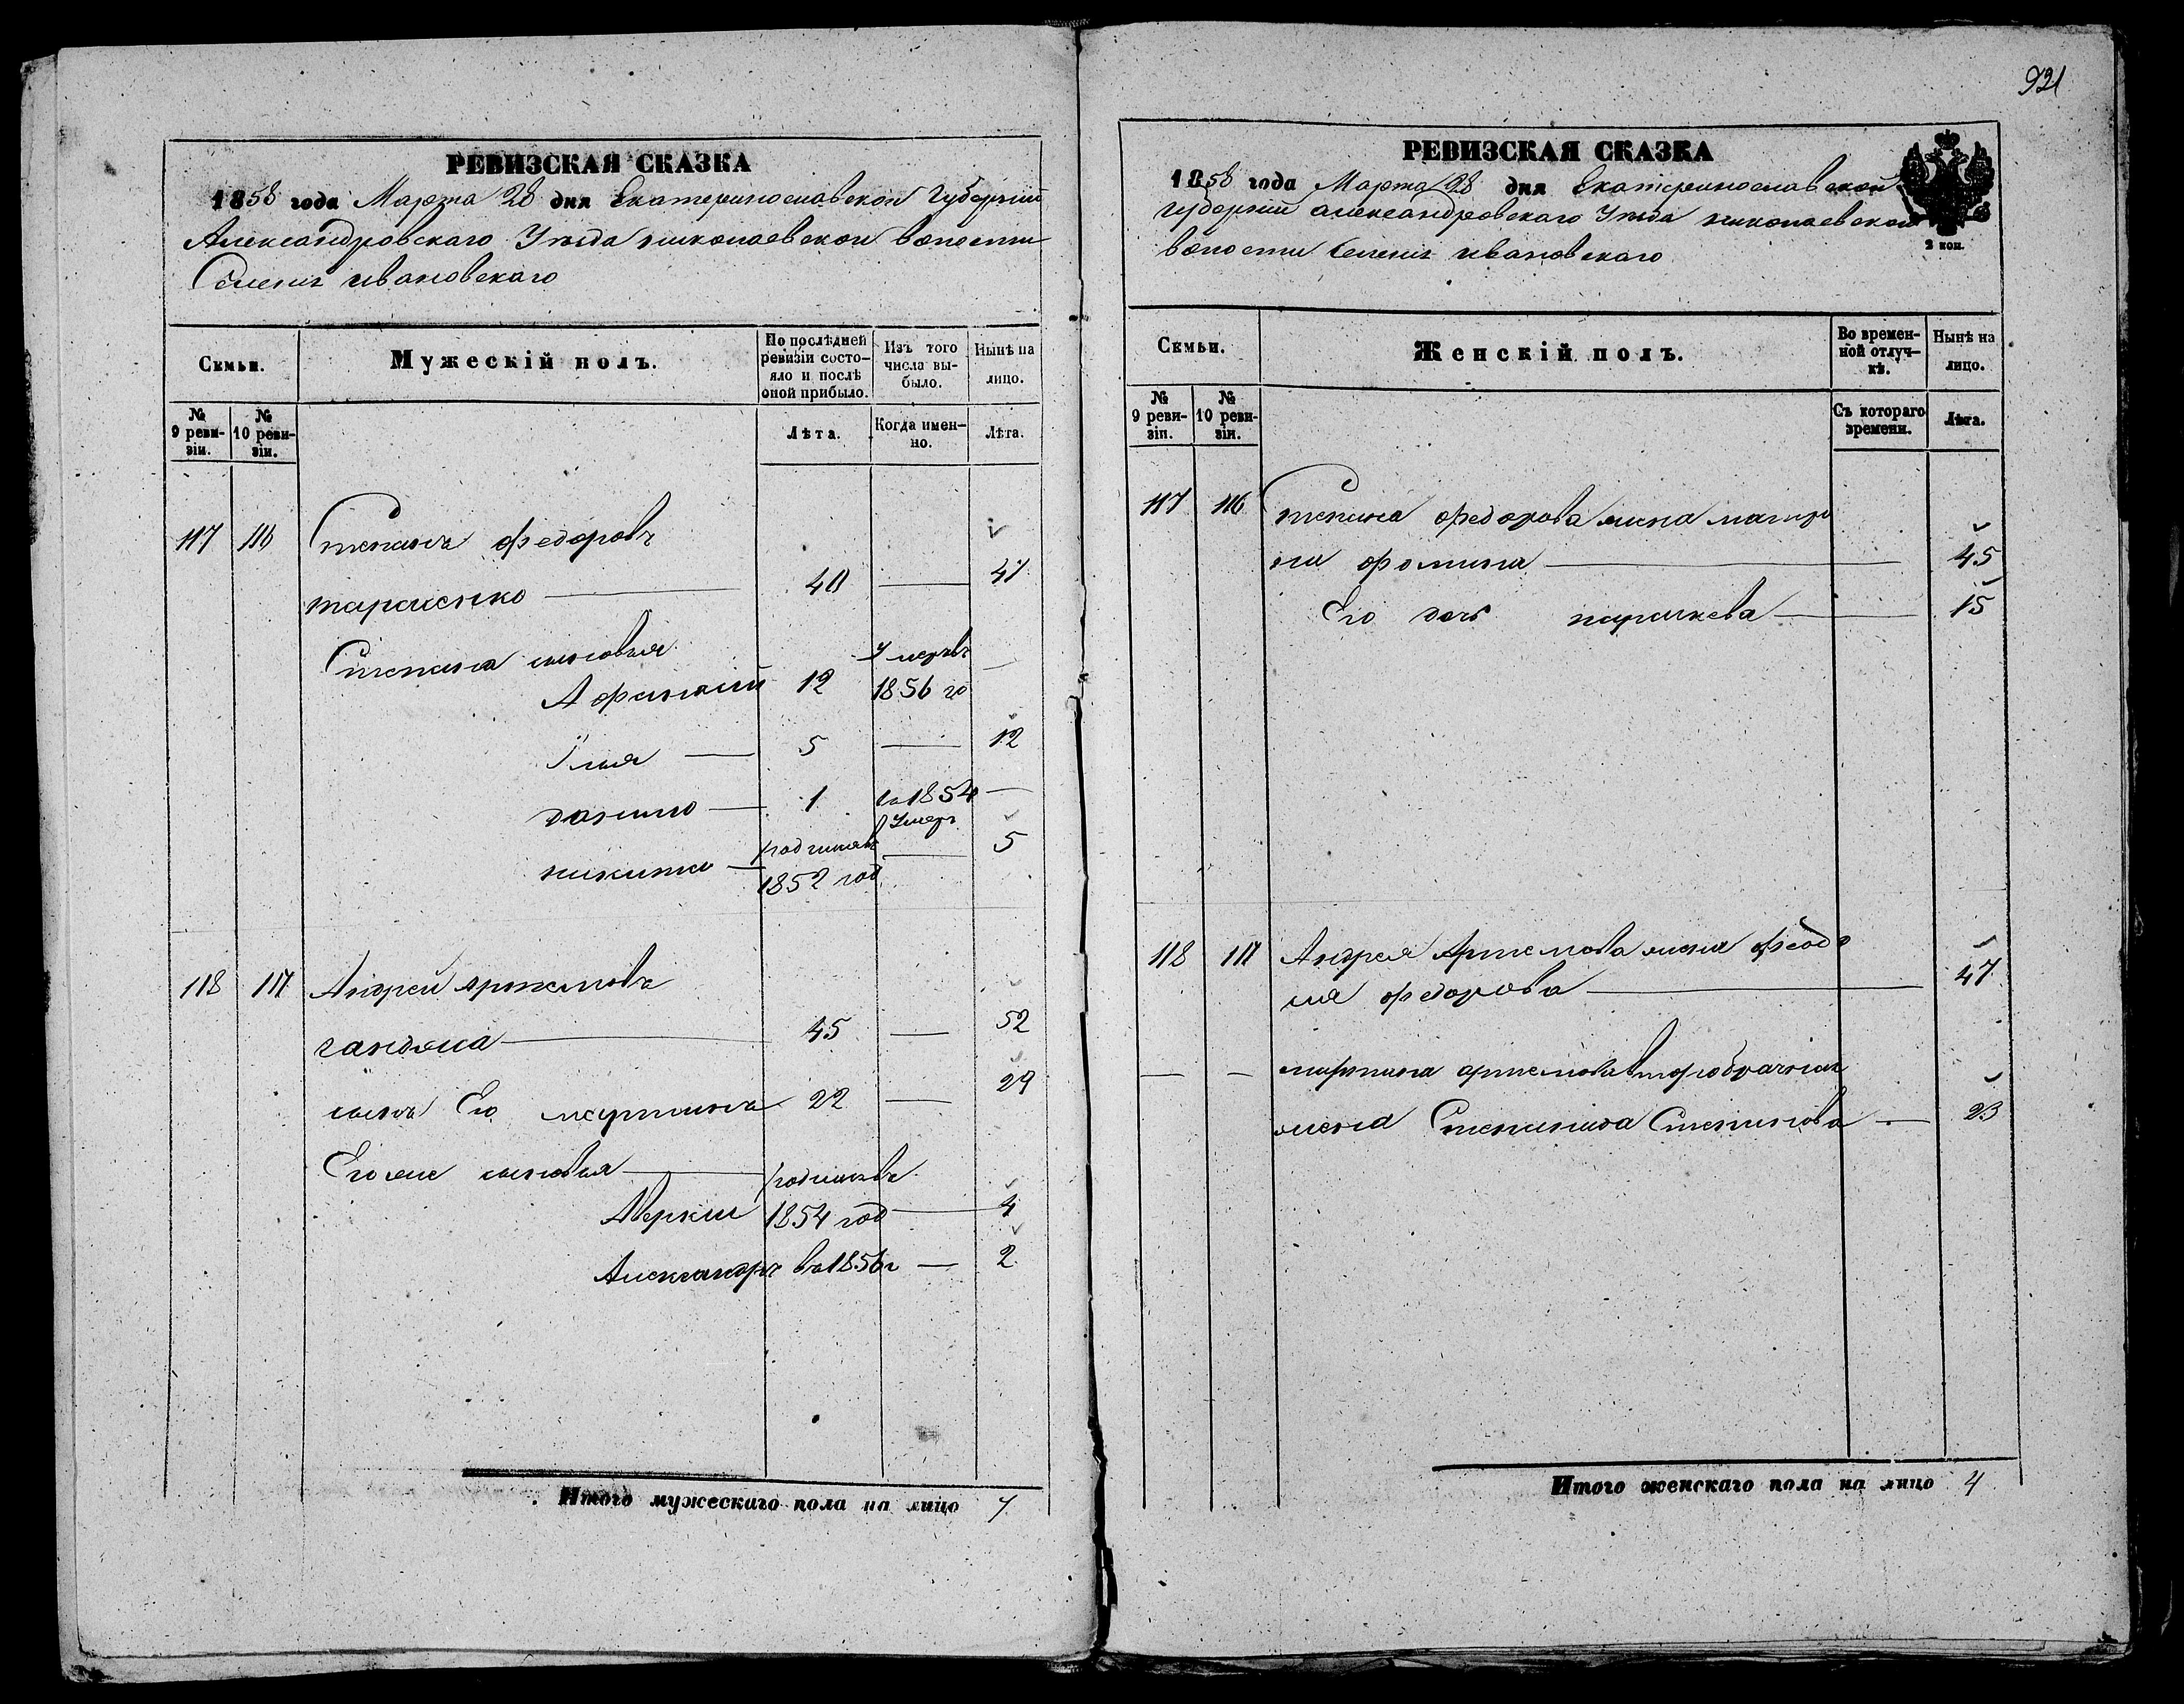 921
РЕВИЗСКАЯ СКАЗКА
1858 года Марта 28 дня Екатеринославской Губернии
Александровскаго Уезда николаевской волости
Селения ивановскаго
Семьи.
Мужескій полъ.
По послѣдней ревизіи состояло и послѣ оной прибыло.
Изъ того числа выбыло.
Нынѣ на лицо.
№ 9 ревизіи.
№ 10 ревизіи.
Лѣта.
Когда именно.
Лѣта.
117 116 Степанъ федоровъ
тараненко 40 — 47
Степана сыновья
Афанасий 12 Умеръ 1856 го —
Илья — 5 — 12
данило — 1 в 1854 Умер —
никита — родился 1852 год — 5
118 117 Андрей артемовъ
ганджа 45 — 52
сынъ Его мартинъ 22 — 29
Его же сыновья — родились
Аверкий 1854 год — 4
Александръ в 1856 г — 2
Итого мужескаго пола на лицо 7
РЕВИЗСКАЯ СКАЗКА
1858 года Марта 28 дня Екатеринославской
губернии александровскаго Уезда николаевской
волости Селения ивановскаго
2 коп.
Семьи.
Женскій полъ.
Во временной отлучкѣ.
Нынѣ на лицо.
№ 9 ревизіи.
№ 10 ревизіи.
Съ котораго времени.
Лѣта.
117 116 Степана федорова жена матро
на фомина — 45
Его дочь параскева — 15
118 117 Андрея Артемова жена феодо
сия федорова — 47
— — мартина артемова второбрачная
жена Степанида Степанова — 23
Итого женскаго пола на лицо 4